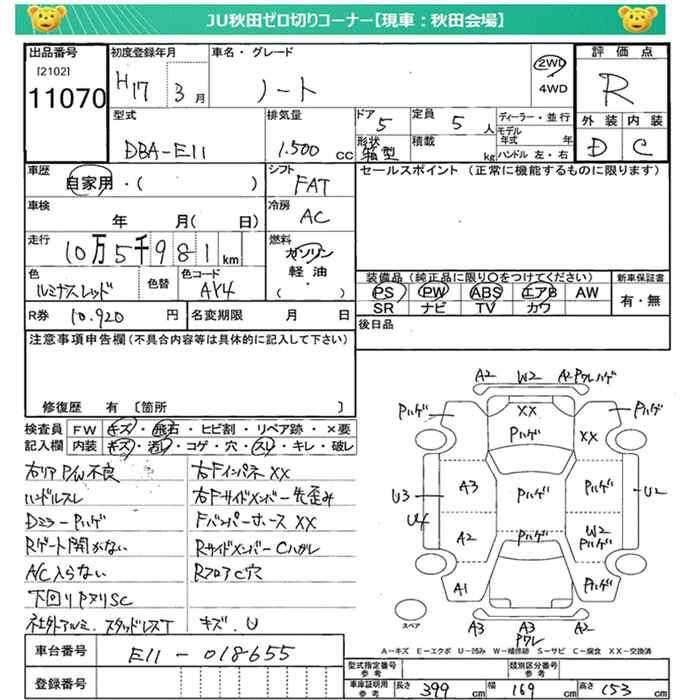 JU秋田ゼロ切りコーナー【現車：秋田会場】
出品番号
[2102]
11070
初度登録年月
H17 3月
車名・グレード
ノート
2WD
4WD
評価点
R
外装 内装
D C
型式
DBA-E11
排気量
1.500 cc
ドア
5
定員
5 人
形状
箱型
積載
kg
ディーラー・並行
モデル年式 年
ハンドル 左・右
車歴
自家用・( )
シフト
FAT
セールスポイント（正常に機能するものに限ります）
車検
年 月( 日)
冷房
AC
走行
10万5千981km
燃料
ガソリン
軽油
( )
色
ルミナスレッド
色替
色コード
AY4
装備品（純正品に限り〇をつけてください）
PS PW ABS エアB AW
SR ナビ TV カワ
新車保証書
有・無
R券 10.920 円
名変期限 月 日
後日品
注意事項申告欄（不具合内容等は具体的に記入して下さい）
修復歴 有 〔箇所 〕
検査員記入欄
FW キズ・飛石・ヒビ割・リペア跡・×要
内装 キズ・汚レ・コゲ・穴・スレ・キレ・破レ
右リアP/W不良
ハンドルスレ
DミラーPハゲ
Rゲート開かない
A/C入らない
下回りPヌリSC
社外アルミ.スタッドレスT
右Fインパネ XX
右Fサイドメンバー先歪み
Fバンパーホース XX
RサイドメンバーCハガレ
RフロアC穴
キズ.U
A2 W2 A2 PワレハゲPハゲ XX Pハゲ
Pハゲ XX
A3 Pハゲ Pハゲ
U3 U2
U4
A2 Pハゲ W2 Pハゲ
A1 Pハゲ
A3 A3 A2
Pワレ
スペア
A－キズ E－エクボ U－凹み W－補修跡 S－サビ C－腐食 XX－交換済
車台番号
E11-018655
登録番号
型式指定番号
参考
類別区分番号
参考
車庫証明用
参考
長さ 399 cm
幅 169 cm
高さ 153 cm